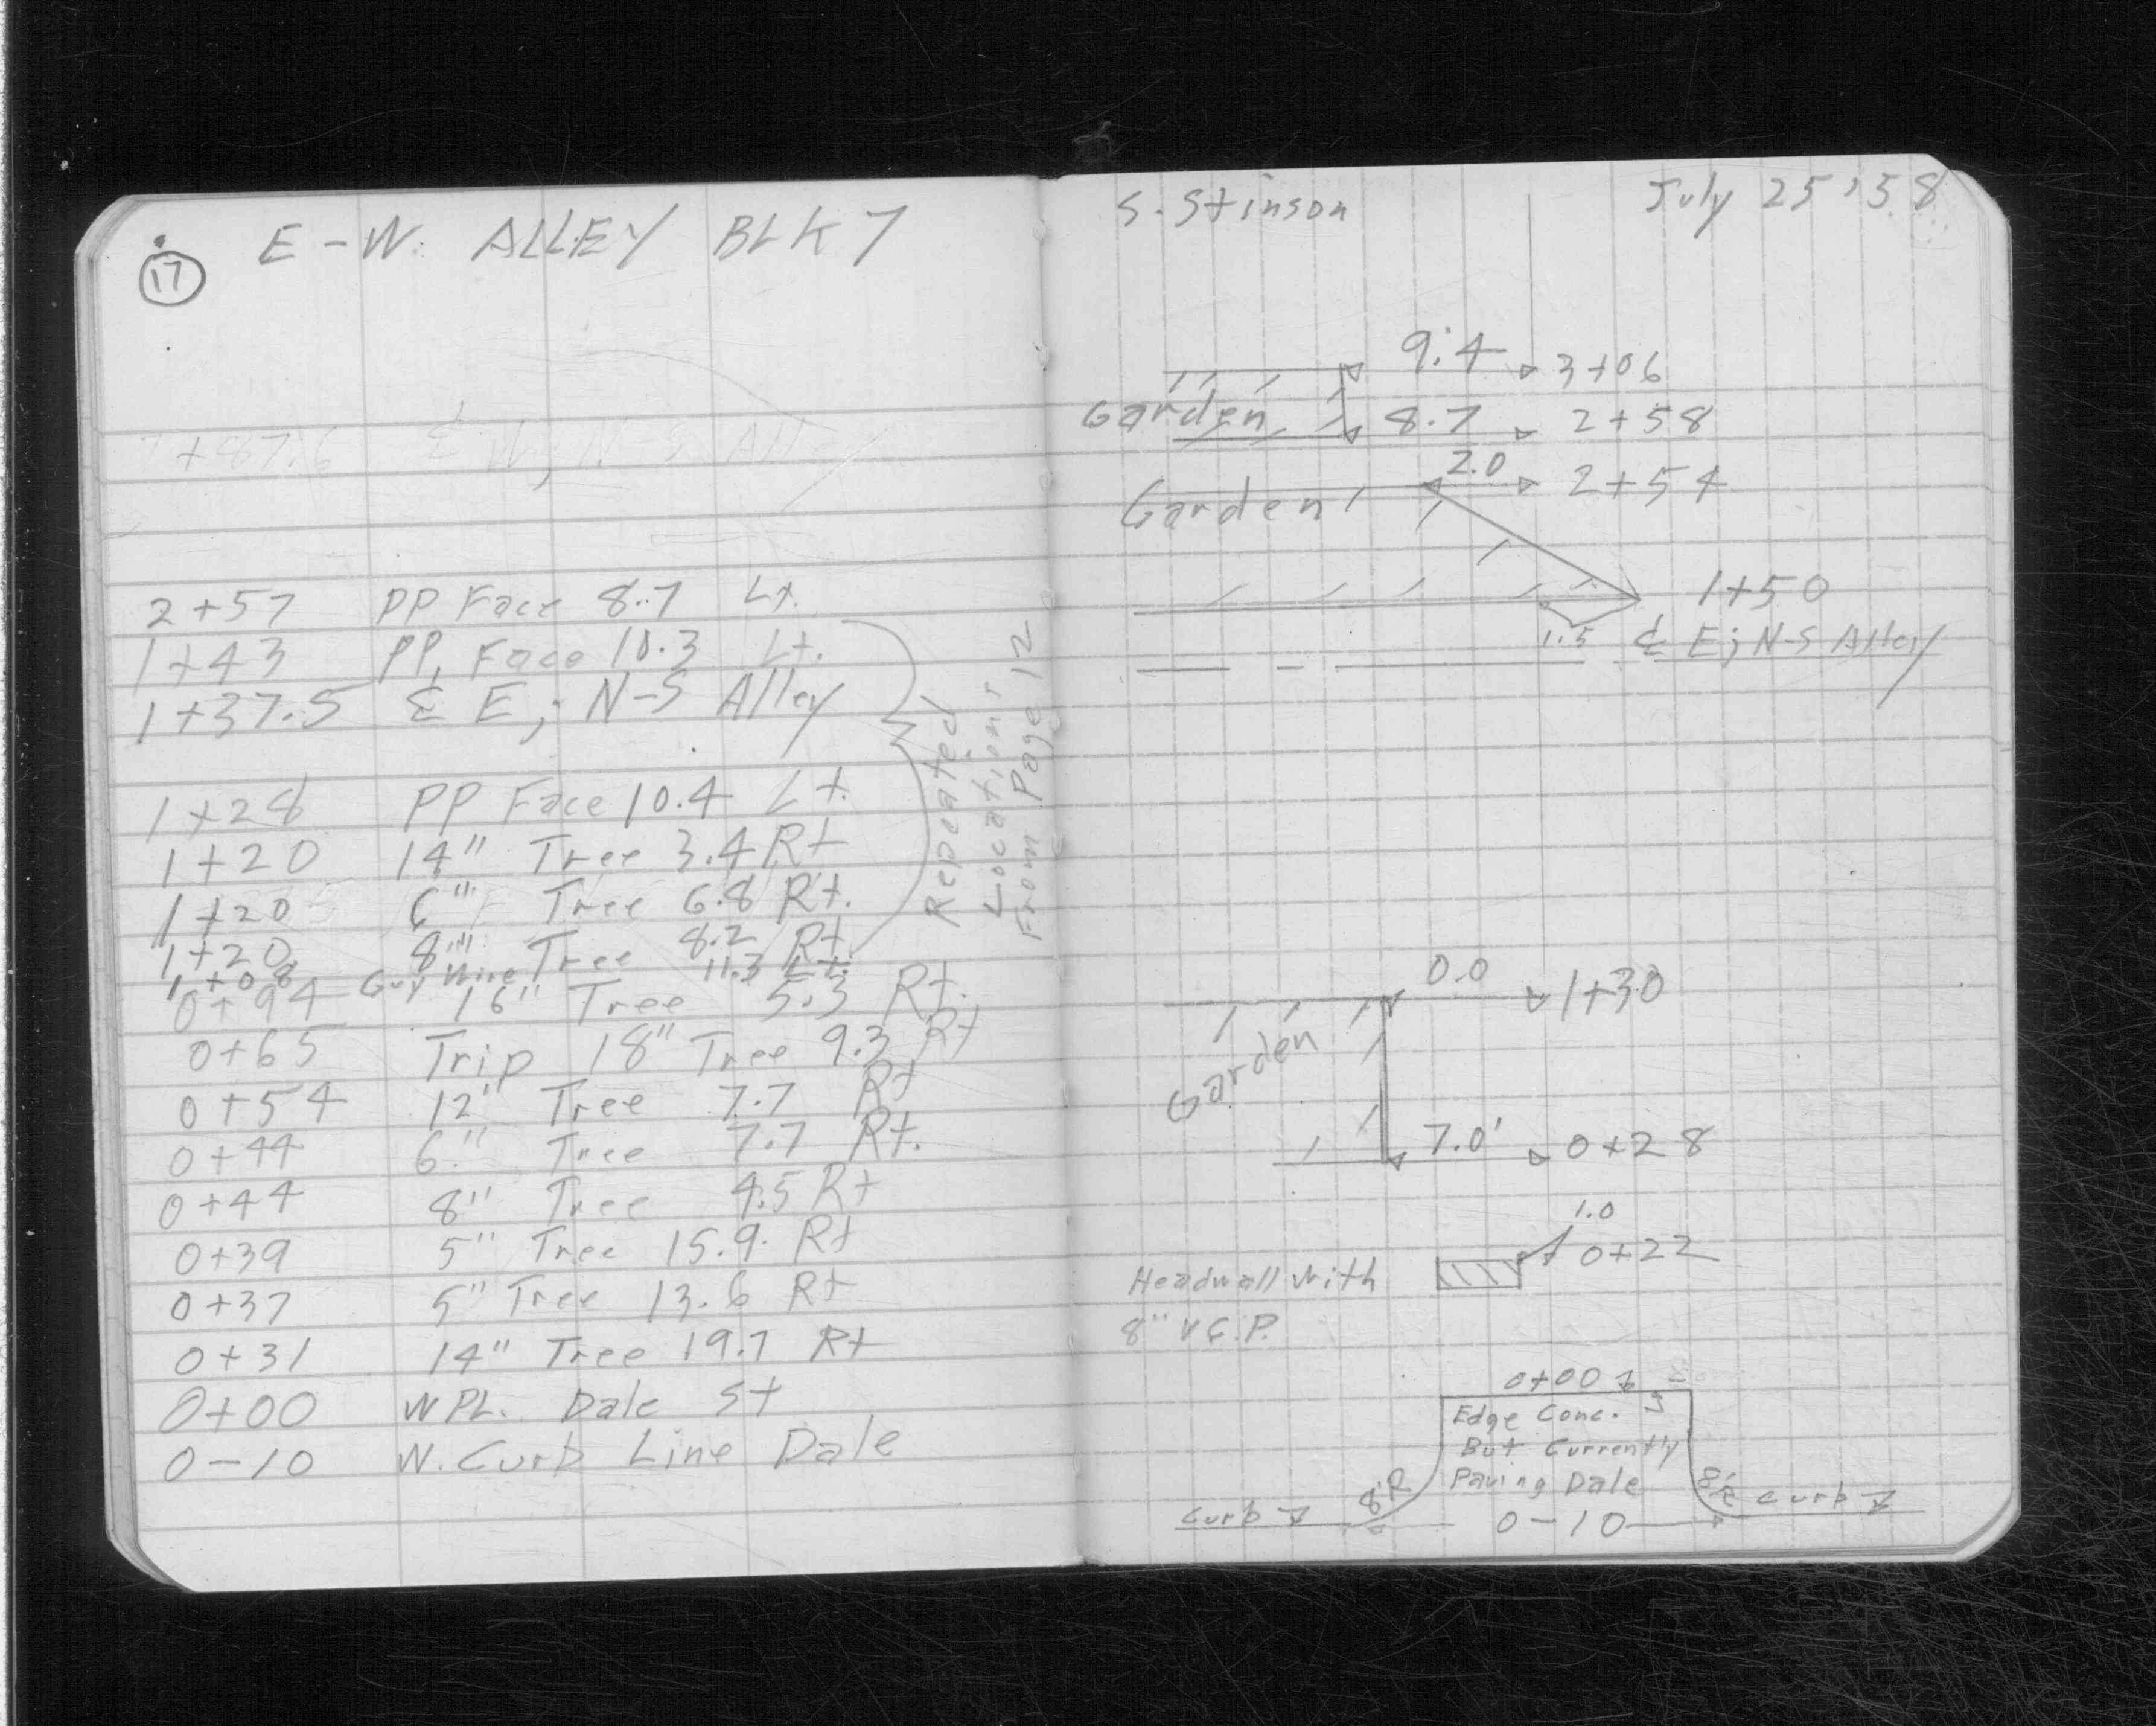 E-W. ALLEY BLK 7
17
2+57 PP Face 8.7 Lt.
1+43 PP, Face 10.3 Lt.
1+37.5 ℄ E; N-S Alley
Repeated
Locations
From Page 12
1+28 PP Face 10.4 Lt.
1+20 14" Tree 3.4 Rt
1+20 6" Tree 6.8 Rt.
1+20 8" Tree 8.2 Rt.
1+08 Guy Wire 11.3 Lt.
0+94 16" Tree 5.3 Rt.
0+65 Trip 18" Tree 9.3 Rt
0+54 12" Tree 7.7 Rt
0+44 6" Tree 7.7 Rt.
0+44 8" Tree 4.5 Rt
0+39 5" Tree 15.9 Rt
0+37 5" Tree 13.6 Rt
0+31 14" Tree 19.7 Rt
0+00 W PL. Dale St
0-10 W. Curb Line Dale
S. Stinson July 25 '58
9.4 3+06
Garden 8.7 2+58
2.0
Garden 2+54
1+50
1.5 ℄ E; N-S Alley
0.0 1+30
Garden
7.0' 0+28
1.0
0+22
Headwall with
8" V.C.P.
0+00
Edge Conc.
But Currently
Paving Dale
Curb 8'R 0-10 8'R Curb